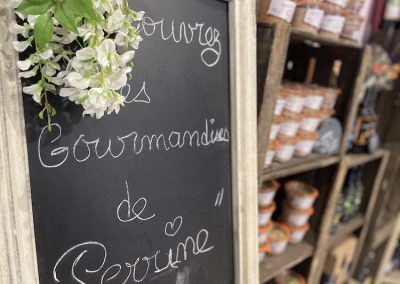 ouvrez
es
Gourmandises
de "
Perrine